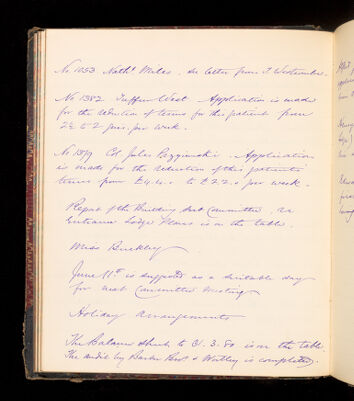 No 1053 Nathl. Miles. See letter from J Westcombe.
No 1382 Tuffen West Application is made
for the reduction of terms for this patient from
2½ to 2 gns. per week.
No 1379 Col Jules Application
is made for the reduction of this patients
terms from £4.4.0 to £2.2.0 per week.
Report of the Building Sub Committee, re
Entrance Lodge Plans is on the table.
Miss Buckley
June 11th is suggested as a suitable day
for next Committee Meeting
Holiday arrangements
The Balance Sheet to 31.3.80 is on the table.
The audit by Barber Bros & is completed.